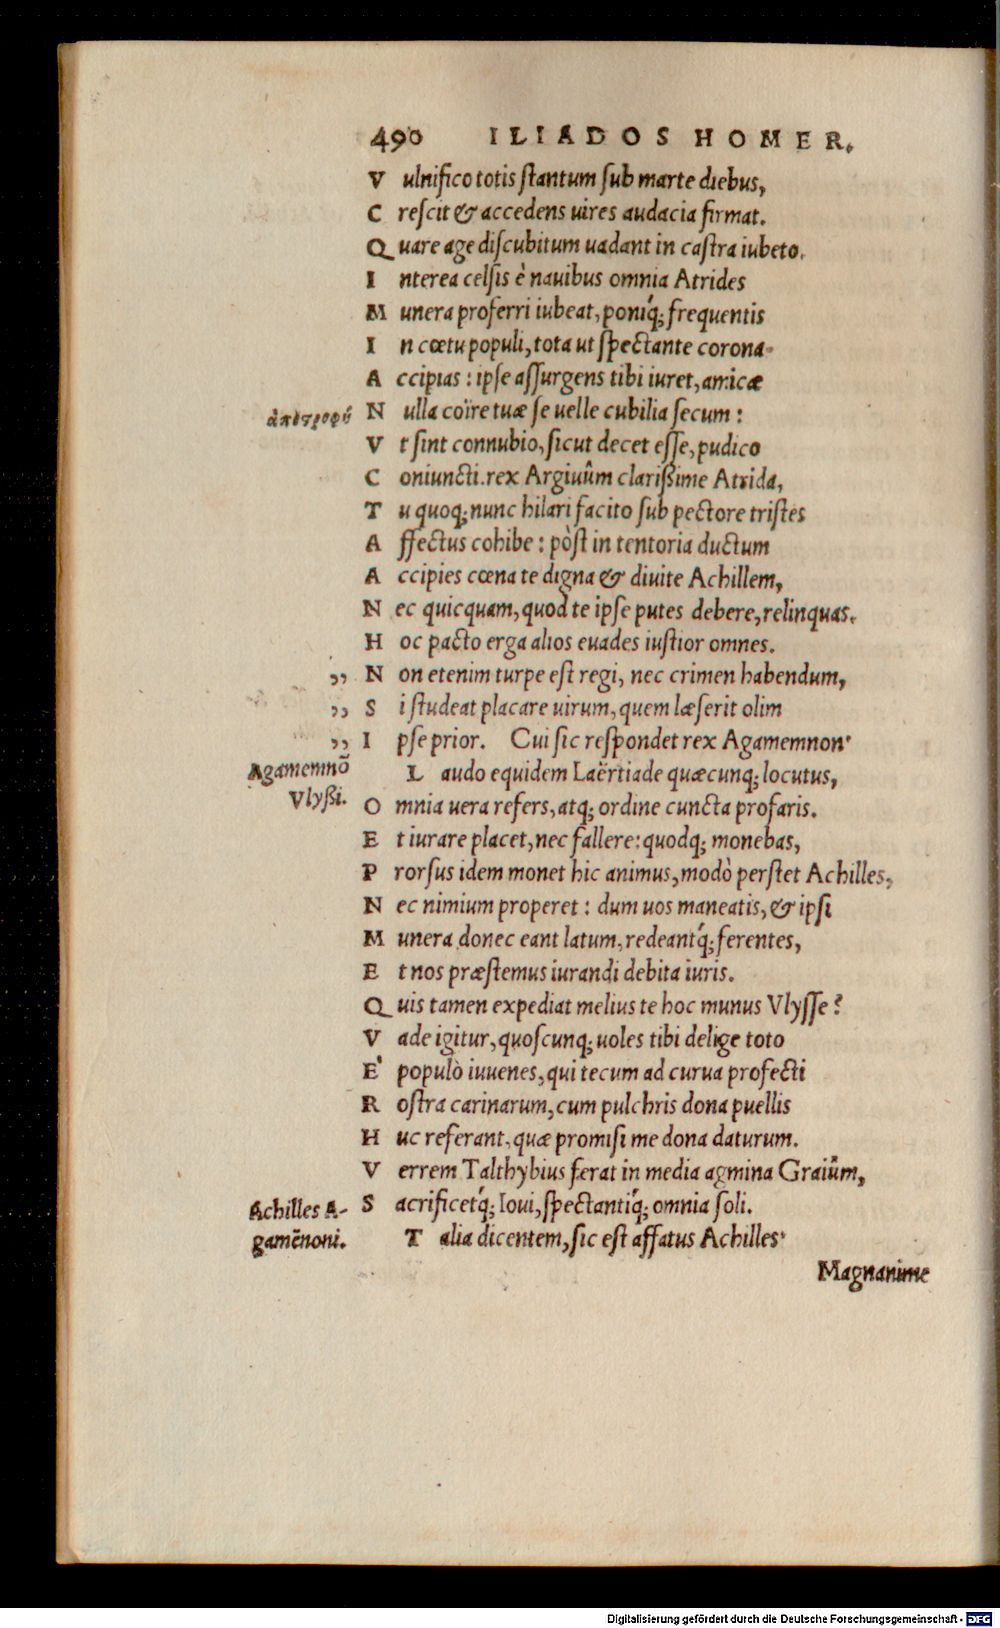 490 ILIADOS HOMER.
V ulnifico totis ſtantum ſub marte diebus,
C reſcit & accedens uires audacia firmat.
Q uare age diſcubitum uadant in caſtra iubeto.
I nterea celſis è nauibus omnia Atrides
M unera proferri iubeat, poniq́; frequentis
I n cœtu populi, tota ut ſpectante corona
A ccipias: ipſe aſſurgens tibi iuret, amicæ
N ulla coïre tuæ ſe uelle cubilia ſecum:
V t ſint connubio, ſicut decet eſſe, pudico
C oniuncti. rex Argiuûm clarißime Atrida,
T u quoq; nunc hilari facito ſub pectore triſtes
A ffectus cohibe: pòſt in tentoria ductum
A ccipies cœna te digna & diuite Achillem,
N ec quicquam, quod te ipſe putes debere, relinquas.
H oc pacto erga alios euades iuſtior omnes.
,, N on etenim turpe eſt regi, nec crimen habendum,
,, S i ſtudeat placare uirum, quem læſerit olim
,, I pſe prior. Cui ſic reſpondet rex Agamemnon·
Agamemnō
Vlyßi.
L audo equidem Laërtiade quæcunq; locutus,
O mnia uera refers, atq; ordine cuncta profaris.
E t iurare placet, nec fallere: quodq; monebas,
P rorſus idem monet hic animus, modò perſtet Achilles,
N ec nimium properet: dum uos maneatis, & ipſi
M unera donec eant latum, redeantq́; ferentes,
E t nos præſtemus iurandi debita iuris.
Q uis tamen expediat melius te hoc munus Vlyſſe?
V ade igitur, quoſcunq; uoles tibi delige toto
E' populò iuuenes, qui tecum ad curua profecti
R oſtra carinarum, cum pulchris dona puellis
H uc referant, quæ promiſi me dona daturum.
V errem Talthybius ferat in media agmina Graiûm,
S acrificetq́; Ioui, ſpectantiq́; omnia ſoli.
Achilles A-
gamēnoni.
T alia dicentem, ſic eſt affatus Achilles·
Magnanime
Digitalisierung gefördert durch die Deutsche Forschungsgemeinschaft - DFG